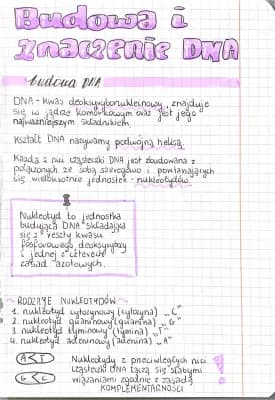 Budowa i
znaczenie DNA
budowa DNA
DNA - kwas deoksyrybonukleinowy, znajduje
się w jądrze komórkowym oraz jest jego
najważniejszym składnikiem.
Kształt DNA nazywamy podwójną helisą.
Każda z nici cząsteczki DNA jest zbudowana z
połączonych ze sobą szeregowo i powtarzających
się wielokrotnie jednostek - nukleotydów.
Nukleotyd to jednostka
budująca DNA składająca
się z reszty kwasu
fosforowego, deoksyrybozy
i jednej z czterech
zasad azotowych.
- RODZAJE NUKLEOTYDÓW -
1. nukleotyd cytozynowy (cytozyna) "C"
2. nukleotyd guaninowy (guanina) "G"
3. nukleotyd tyminowy (tymina) "T"
4. nukleotyd adeninowy (adenina) "A"
A T
G C
Nukleotydy z przeciwległych nici
cząsteczki DNA łączą się słabymi
wiązaniami zgodnie z zasadą
KOMPLEMENTARNOŚCI
!